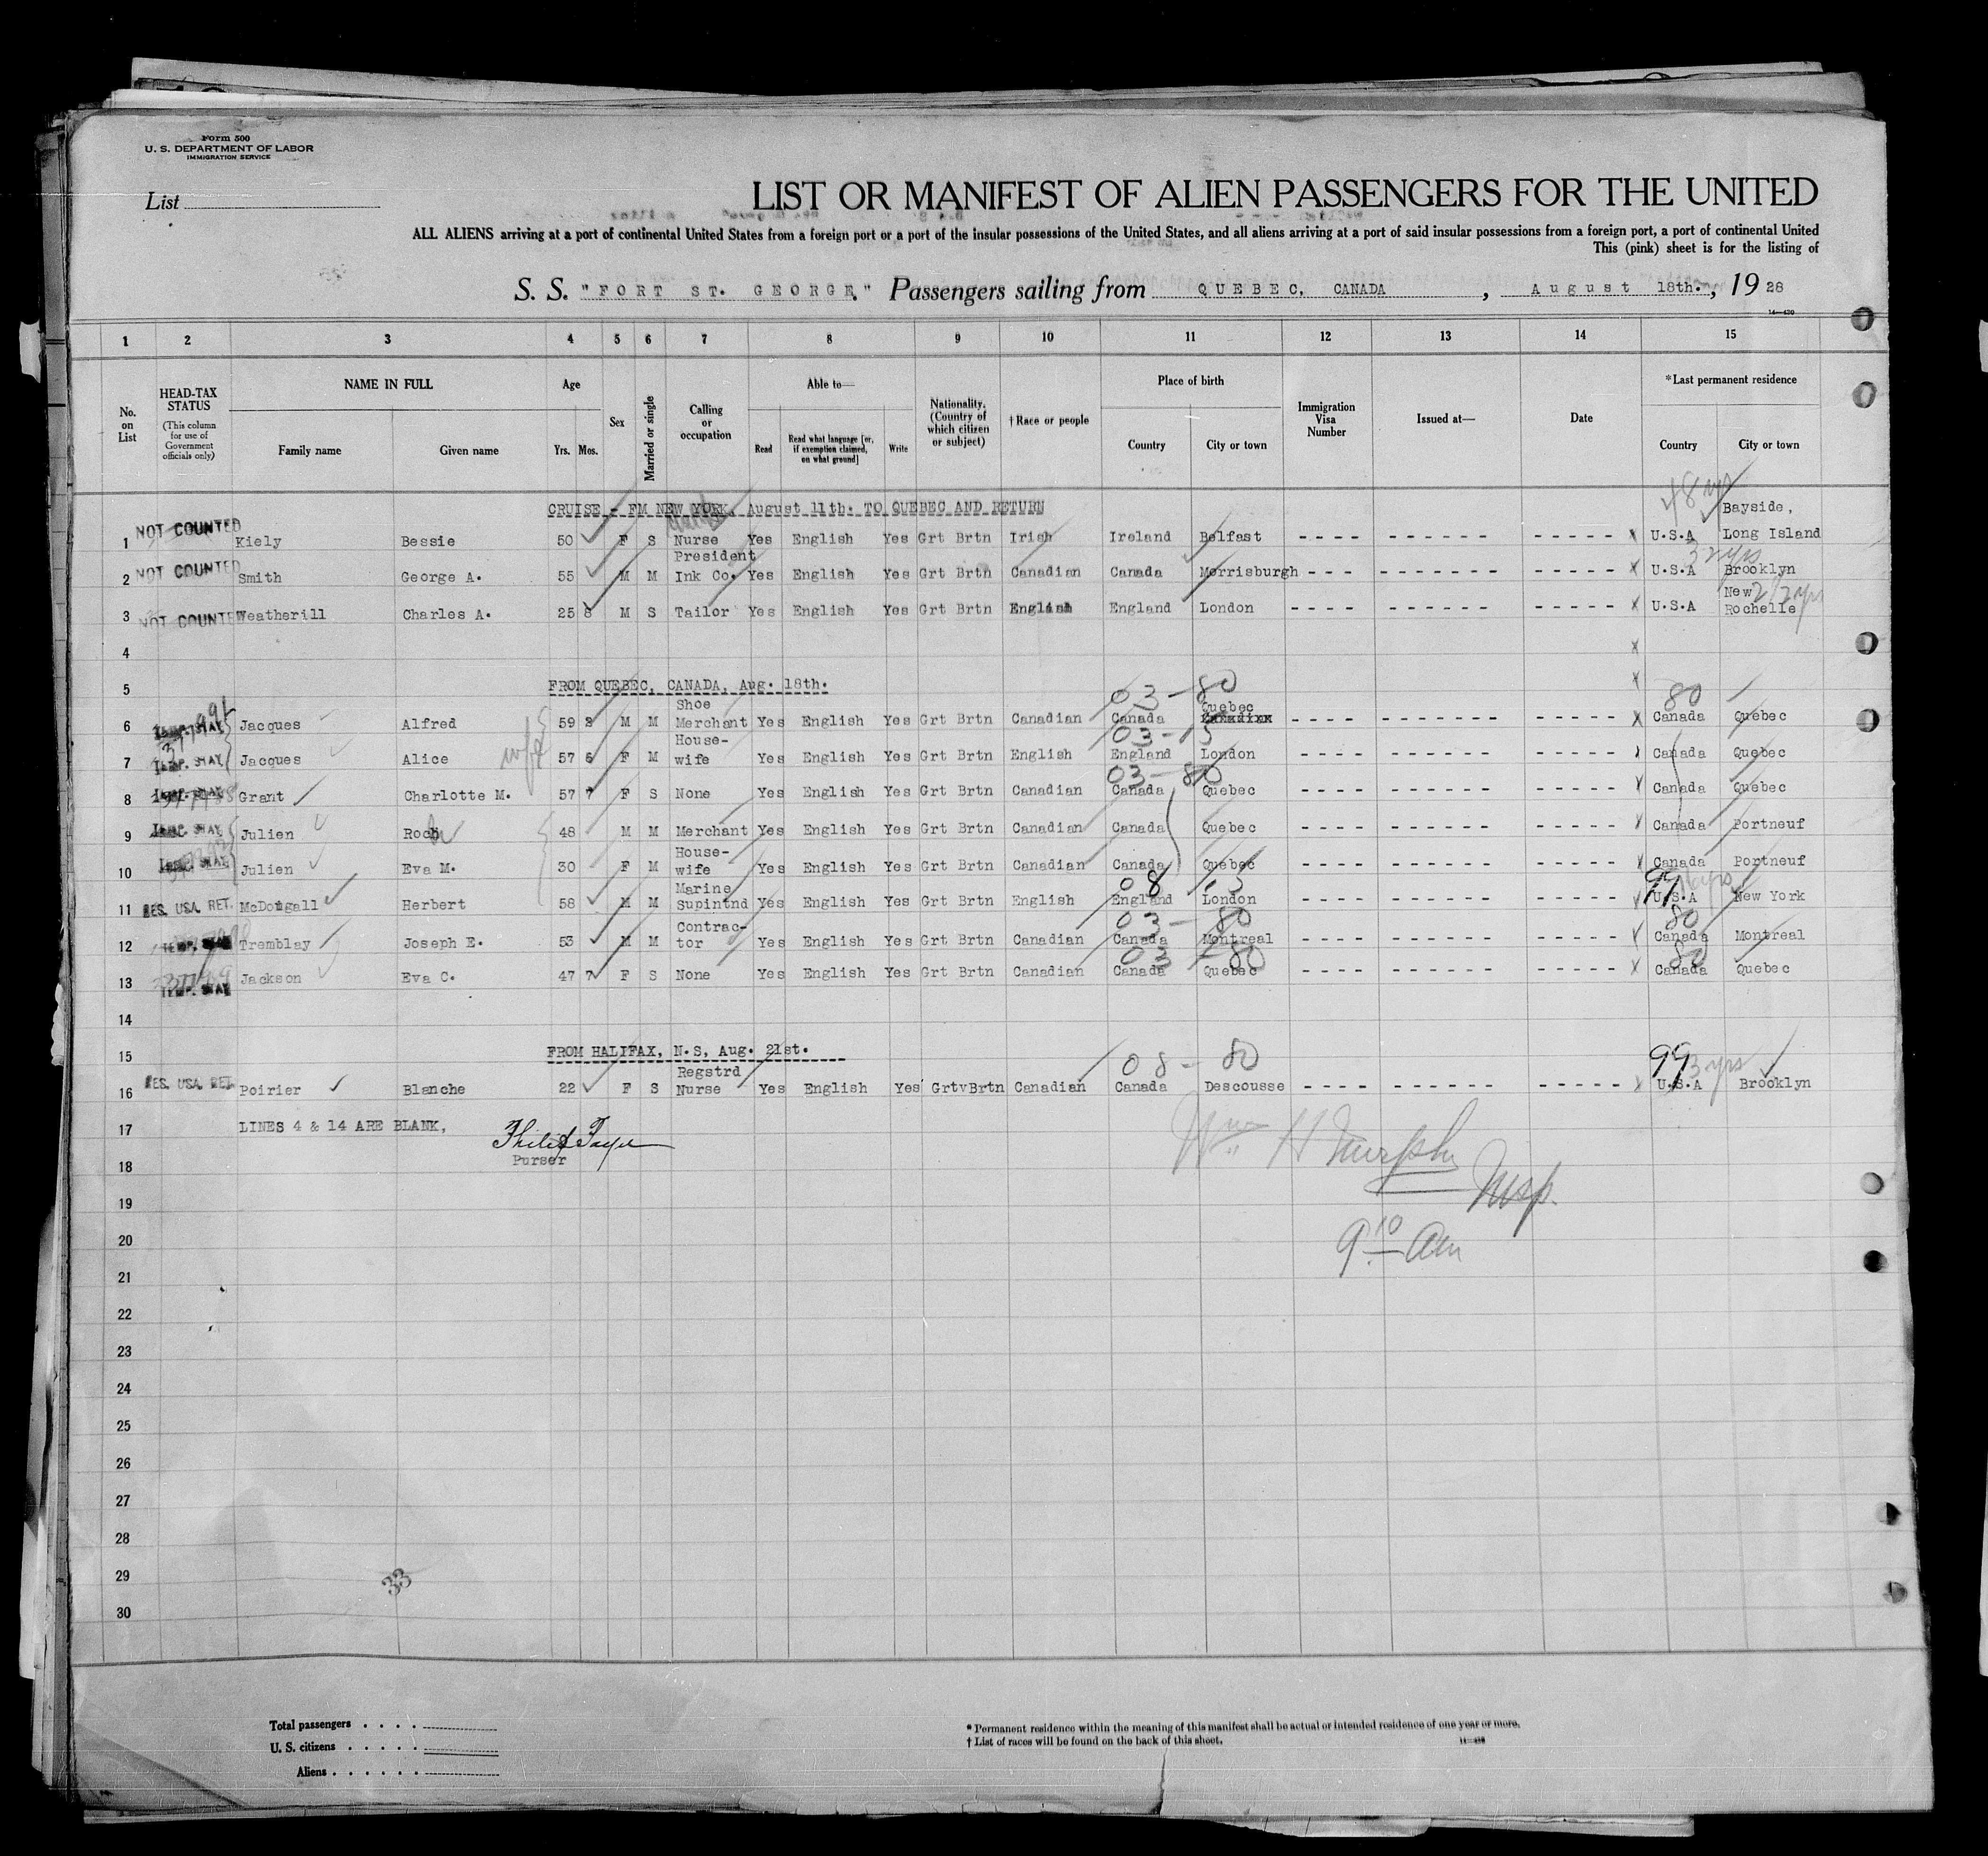 Form 500
U. S. DEPARTMENT OF LABOR
IMMIGRATION SERVICE
List
LIST OR MANIFEST OF ALIEN PASSENGERS FOR THE UNITED
ALL ALIENS arriving at a port of continental United States from a foreign port or a port of the insular possessions of the United States, and all aliens arriving at a port of said insular possessions from a foreign port, a port of continental United
This (pink) sheet is for the listing of
S. S. "FORT ST. GEORGE." Passengers sailing from QUEBEC, CANADA, August 18th., 1928
14—430
1 2 3 4 5 6 7 8 9 10 11 12 13 14 15
No. on List
HEAD-TAX STATUS (This column for use of Government officials only)
NAME IN FULL Family name Given name
Age Yrs. Mos.
Sex
Married or single
Calling or occupation
Able to— Read Read what language [or, if exemption claimed, on what ground] Write
Nationality. (Country of which citizen or subject)
† Race or people
Place of birth Country City or town
Immigration Visa Number
Issued at—
Date
*Last permanent residence Country City or town
CRUISE - FM NEW YORK, August 11th. TO QUEBEC AND RETURN
48 yrs
1 NOT COUNTED Kiely Bessie 50 F S Nurse Yes English Yes Grt Brtn Irish Ireland Belfast - - - - - - - - - - - - - - - - x U.S.A Bayside, Long Island
32 yrs
2 NOT COUNTED Smith George A. 55 M M President Ink Co. Yes English Yes Grt Brtn Canadian Canada Morrisburgh - - - - - - - - - - - - - - - x U.S.A Brooklyn
2 1/2 yrs
3 NOT COUNTED Weatherill Charles A. 25 8 M S Tailor Yes English Yes Grt Brtn English England London - - - - - - - - - - - - - - - - x U.S.A New Rochelle
4 x
5 FROM QUEBEC, CANADA, Aug. 18th. x
03-80 80
6 TEMP. STAY Jacques Alfred 59 3 M M Shoe Merchant Yes English Yes Grt Brtn Canadian Canada Quebec - - - - - - - - - - - - - - - - x Canada Quebec
wife
03-13
7 TEMP. STAY Jacques Alice 57 6 F M House-wife Yes English Yes Grt Brtn English England London - - - - - - - - - - - - - - - - x Canada Quebec
03-80
8 TEMP. STAY Grant Charlotte M. 57 7 F S None Yes English Yes Grt Brtn Canadian Canada Quebec - - - - - - - - - - - - - - - - x Canada Quebec
9 TEMP. STAY Julien Roch 48 M M Merchant Yes English Yes Grt Brtn Canadian Canada Quebec - - - - - - - - - - - - - - - - x Canada Portneuf
10 TEMP. STAY Julien Eva M. 30 F M House-wife Yes English Yes Grt Brtn Canadian Canada Quebec - - - - - - - - - - - - - - - - x Canada Portneuf
08 13 99
11 RES. USA. RET. McDougall Herbert 58 M M Marine Supintnd Yes English Yes Grt Brtn English England London - - - - - - - - - - - - - - - - U.S.A New York
03-80 80
12 TEMP. STAY Tremblay Joseph E. 53 M M Contrac-tor Yes English Yes Grt Brtn Canadian Canada Montreal - - - - - - - - - - - - - - - - Canada Montreal
03-80 80
13 TEMP. STAY Jackson Eva C. 47 7 F S None Yes English Yes Grt Brtn Canadian Canada Quebec - - - - - - - - - - - - - - - - x Canada Quebec
14
15 FROM HALIFAX, N.S, Aug. 21st.
08-80 99 3 yrs
16 RES. USA. RET. Poirier Blanche 22 F S Regstrd Nurse Yes English Yes GrtvBrtn Canadian Canada Descousse - - - - - - - - - - - - - - - - x U.S.A Brooklyn
17 LINES 4 & 14 ARE BLANK,
Purser
Wm H Murphy
Insp.
9 10 am
18
19
20
21
22
23
24
25
26
27
28
29
33
30
Total passengers . . . .
U. S. citizens . . . . .
Aliens . . . . . .
* Permanent residence within the meaning of this manifest shall be actual or intended residence of one year or more.
† List of races will be found on the back of this sheet.